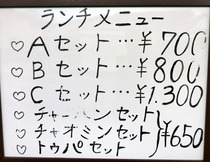 ランチメニュー
♡Aセット…¥700
♡Bセット…¥800
♡Cセット…¥1.300
♡チャーハンセット
♡チャオミンセット}¥650
♡トゥパセット